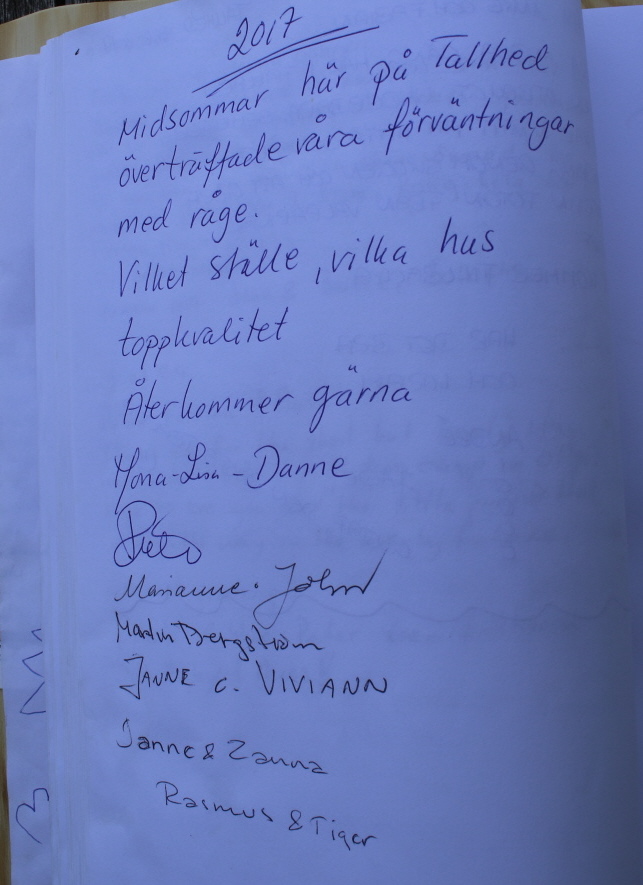 2017
Midsommar här på Tallhed
överträffade våra förväntningar
med råge.
Vilket ställe, vilka hus
toppkvalitet
Återkommer gärna
Mona-Lisa - Danne
Marianne. John
Martin Bergström
JANNE c. VIVIANN
Janne & Zanna
Rasmus & Tiger